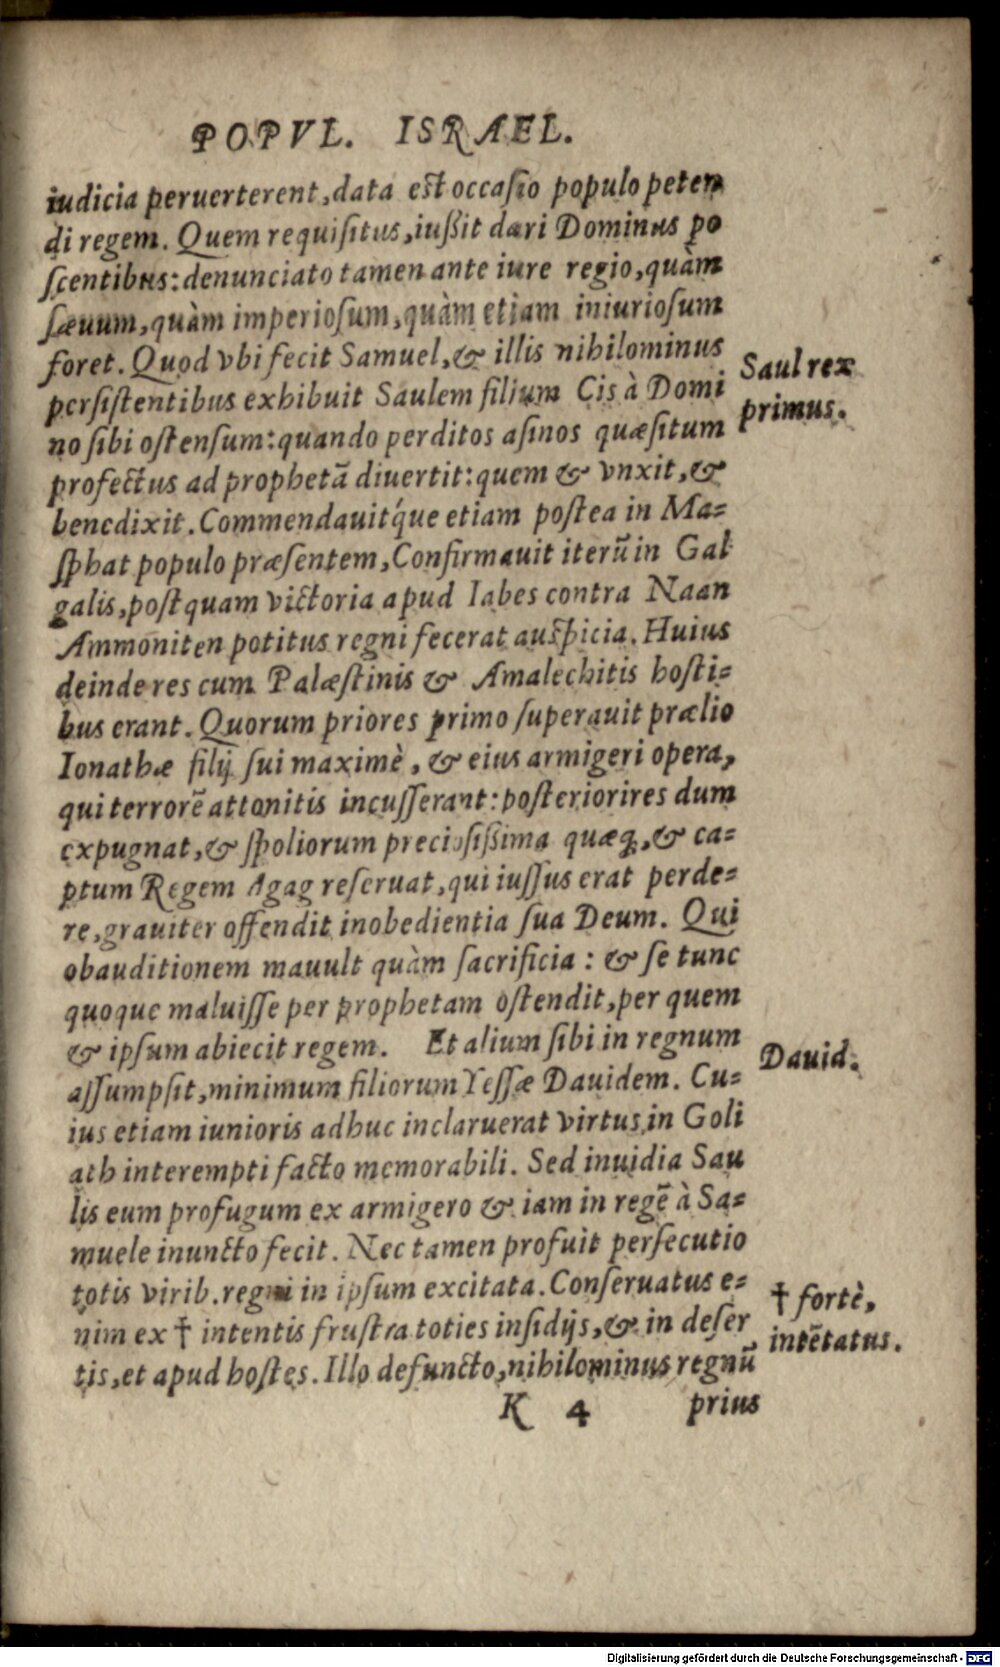 POPVL. ISRAEL.
iudicia peruerterent, data est occasio populo peten
di regem. Quem requisitus, iußit dari Dominus po
scentibus: denunciato tamen ante iure regio, quàm
sæuum, quàm imperiosum, quàm etiam iniuriosum
foret. Quod vbi fecit Samuel, & illis nihilominus
persistentibus exhibuit Saulem filium Cis à Domi
no sibi ostensum: quando perditos asinos quæsitum
profectus ad prophetã diuertit: quem & vnxit, &
benedixit. Commendauitq́ue etiam postea in Ma=
sphat populo præsentem, Confirmauit iterũ in Gal
galis, postquam victoria apud Iabes contra Naan
Ammoniten potitus regni fecerat auspicia. Huius
deinde res cum Palæstinis & Amalechitis hosti=
bus erant. Quorum priores primo superauit prælio
Ionathæ filij sui maximè, & eius armigeri opera,
qui terrorẽ attonitis incusserant: posteriorires dum
expugnat, & spoliorum preciosißima quæq;, & ca=
ptum Regem Agag reseruat, qui iussus erat perde=
re, grauiter offendit inobedientia sua Deum. Qui
obauditionem mauult quàm sacrificia: & se tunc
quoque maluisse per prophetam ostendit, per quem
& ipsum abiecit regem. Et alium sibi in regnum
assumpsit, minimum filiorum Yessæ Dauidem. Cu=
ius etiam iunioris adhuc inclaruerat virtus, in Goli
ath interempti facto memorabili. Sed inuidia Sau
lis eum profugum ex armigero & iam in regẽ à Sa=
muele inuncto fecit. Nec tamen profuit persecutio
totis virib. regni in ipsum excitata. Conseruatus e=
nim ex † intentis frustra toties insidijs, & in deser
tis, et apud hostes. Illo defuncto, nihilominus regnũ
K 4 prius
Saul rex
primus.
Dauid.
† fortè,
intẽtatus.
Digitalisierung gefördert durch die Deutsche Forschungsgemeinschaft - DFG